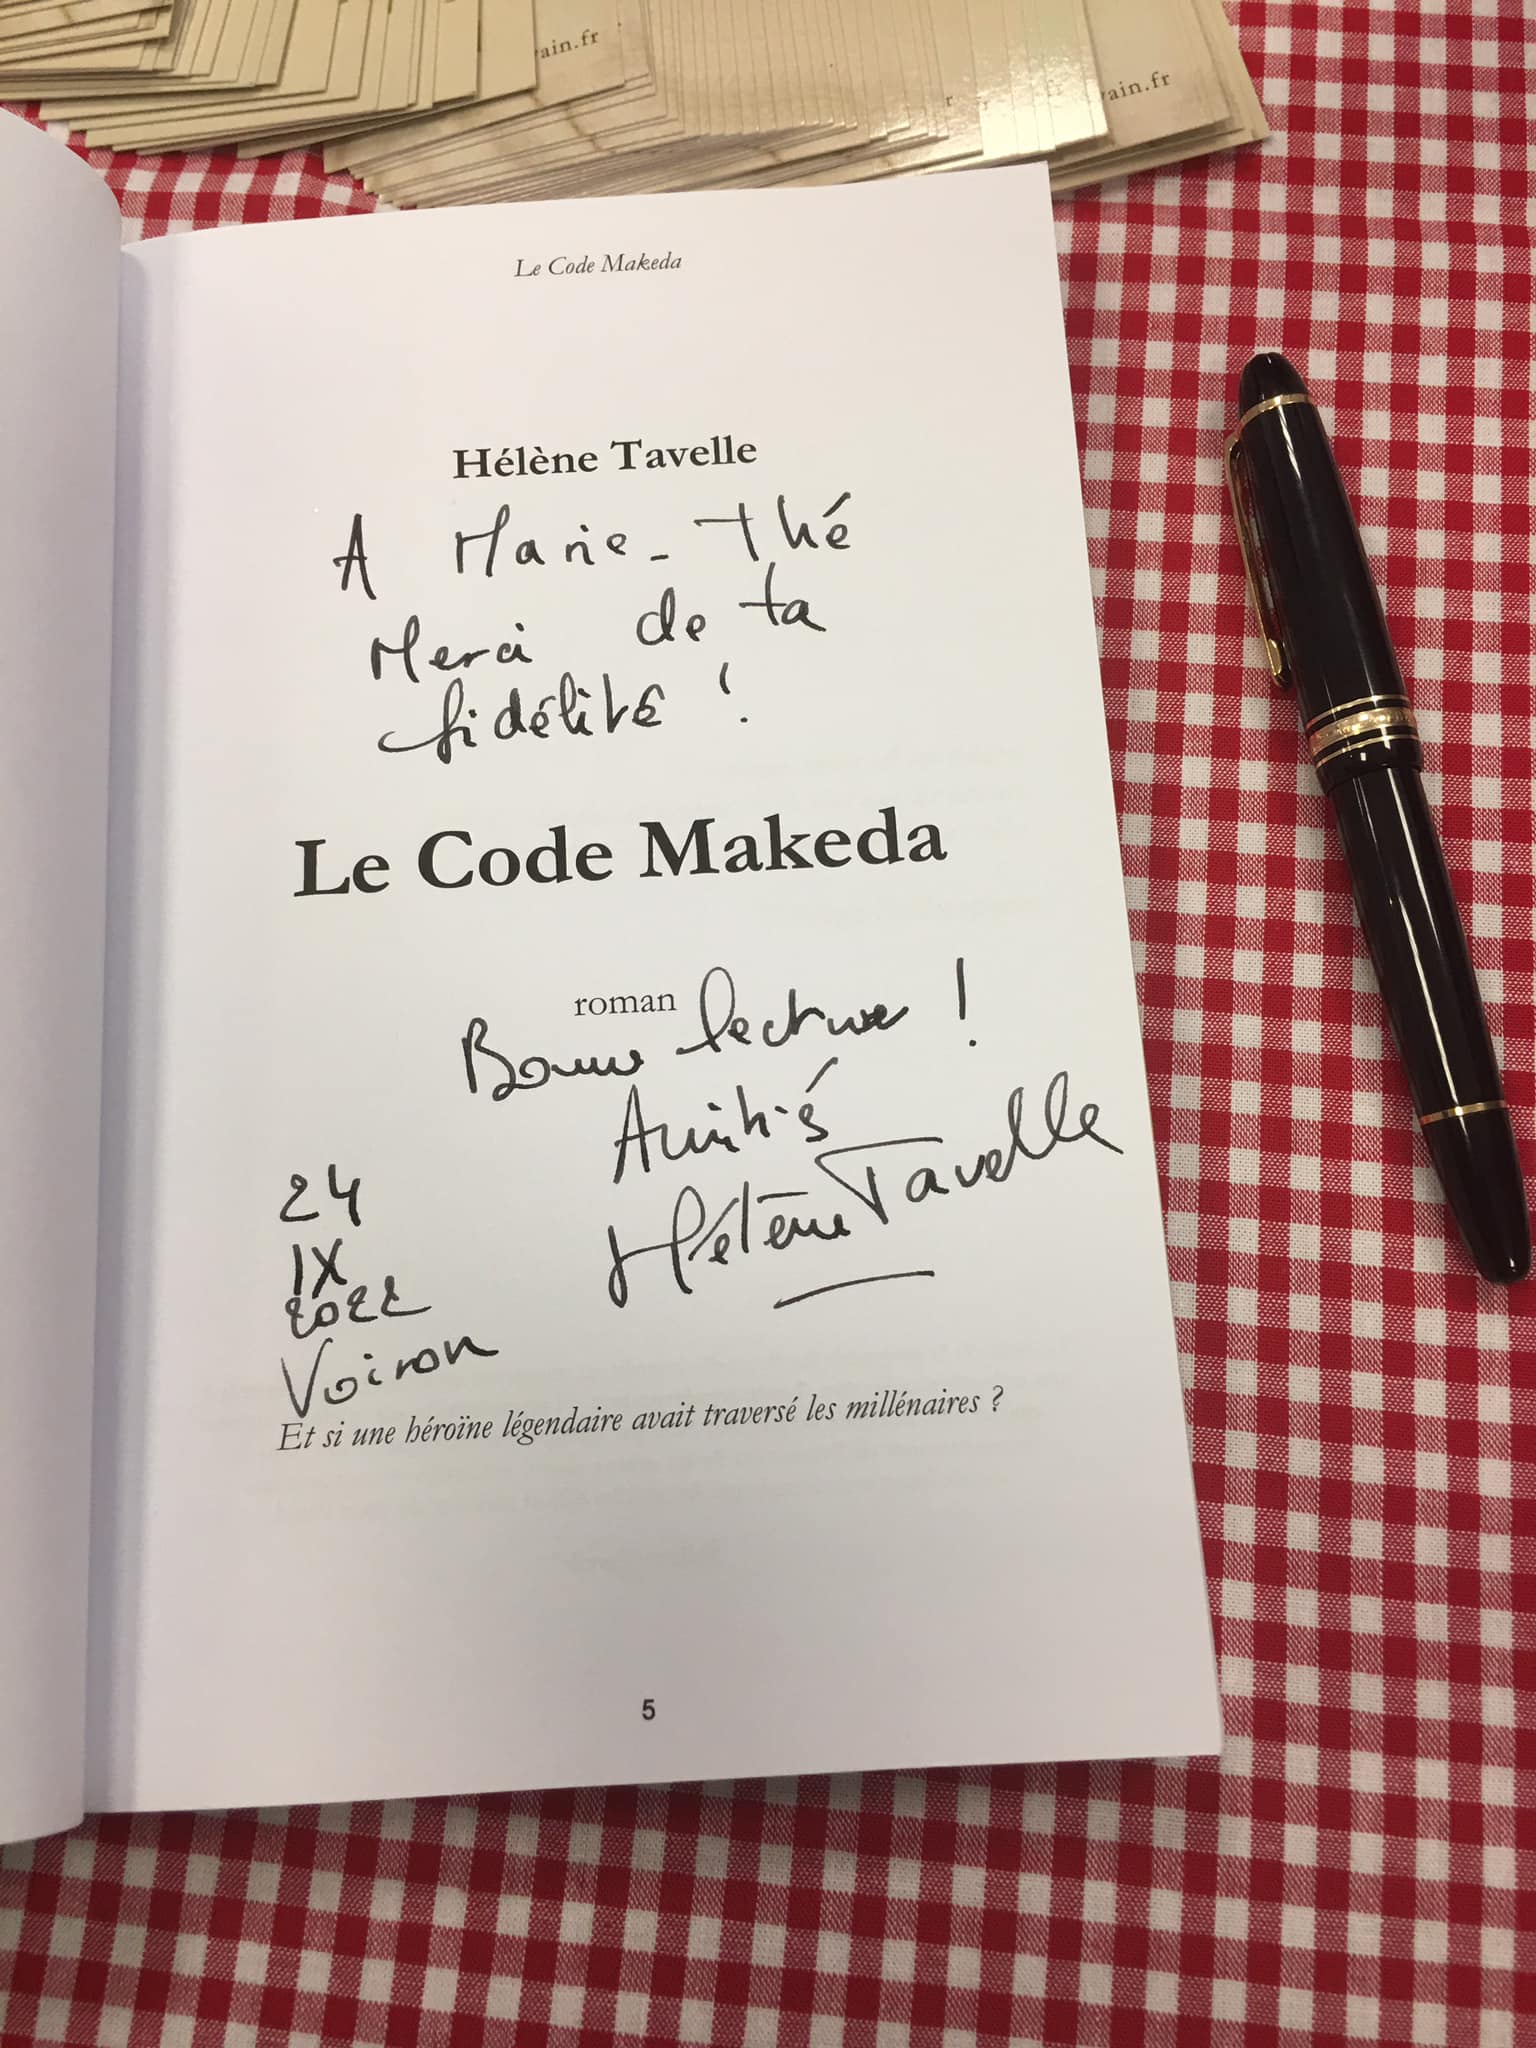 ain.fr
vain.fr
Le Code Makeda
Hélène Tavelle
A Marie-Thé
Merci de ta
fidélité !
Le Code Makeda
roman
Bonne lecture !
Amitiés
Hélène Tavelle
24
IX
2022
Voiron
Et si une héroïne légendaire avait traversé les millénaires ?
5